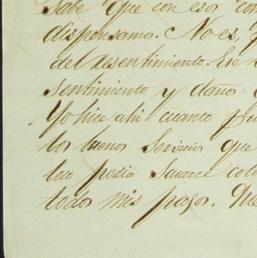 Sabe que con esos con
dispensamo. No es, p
del desentimiento. Ese
sentimiento y daño
Yo hice ahi cuanto pu
los buenos Servicios que
los podia Sacarce colo
todos mis pasos. Que